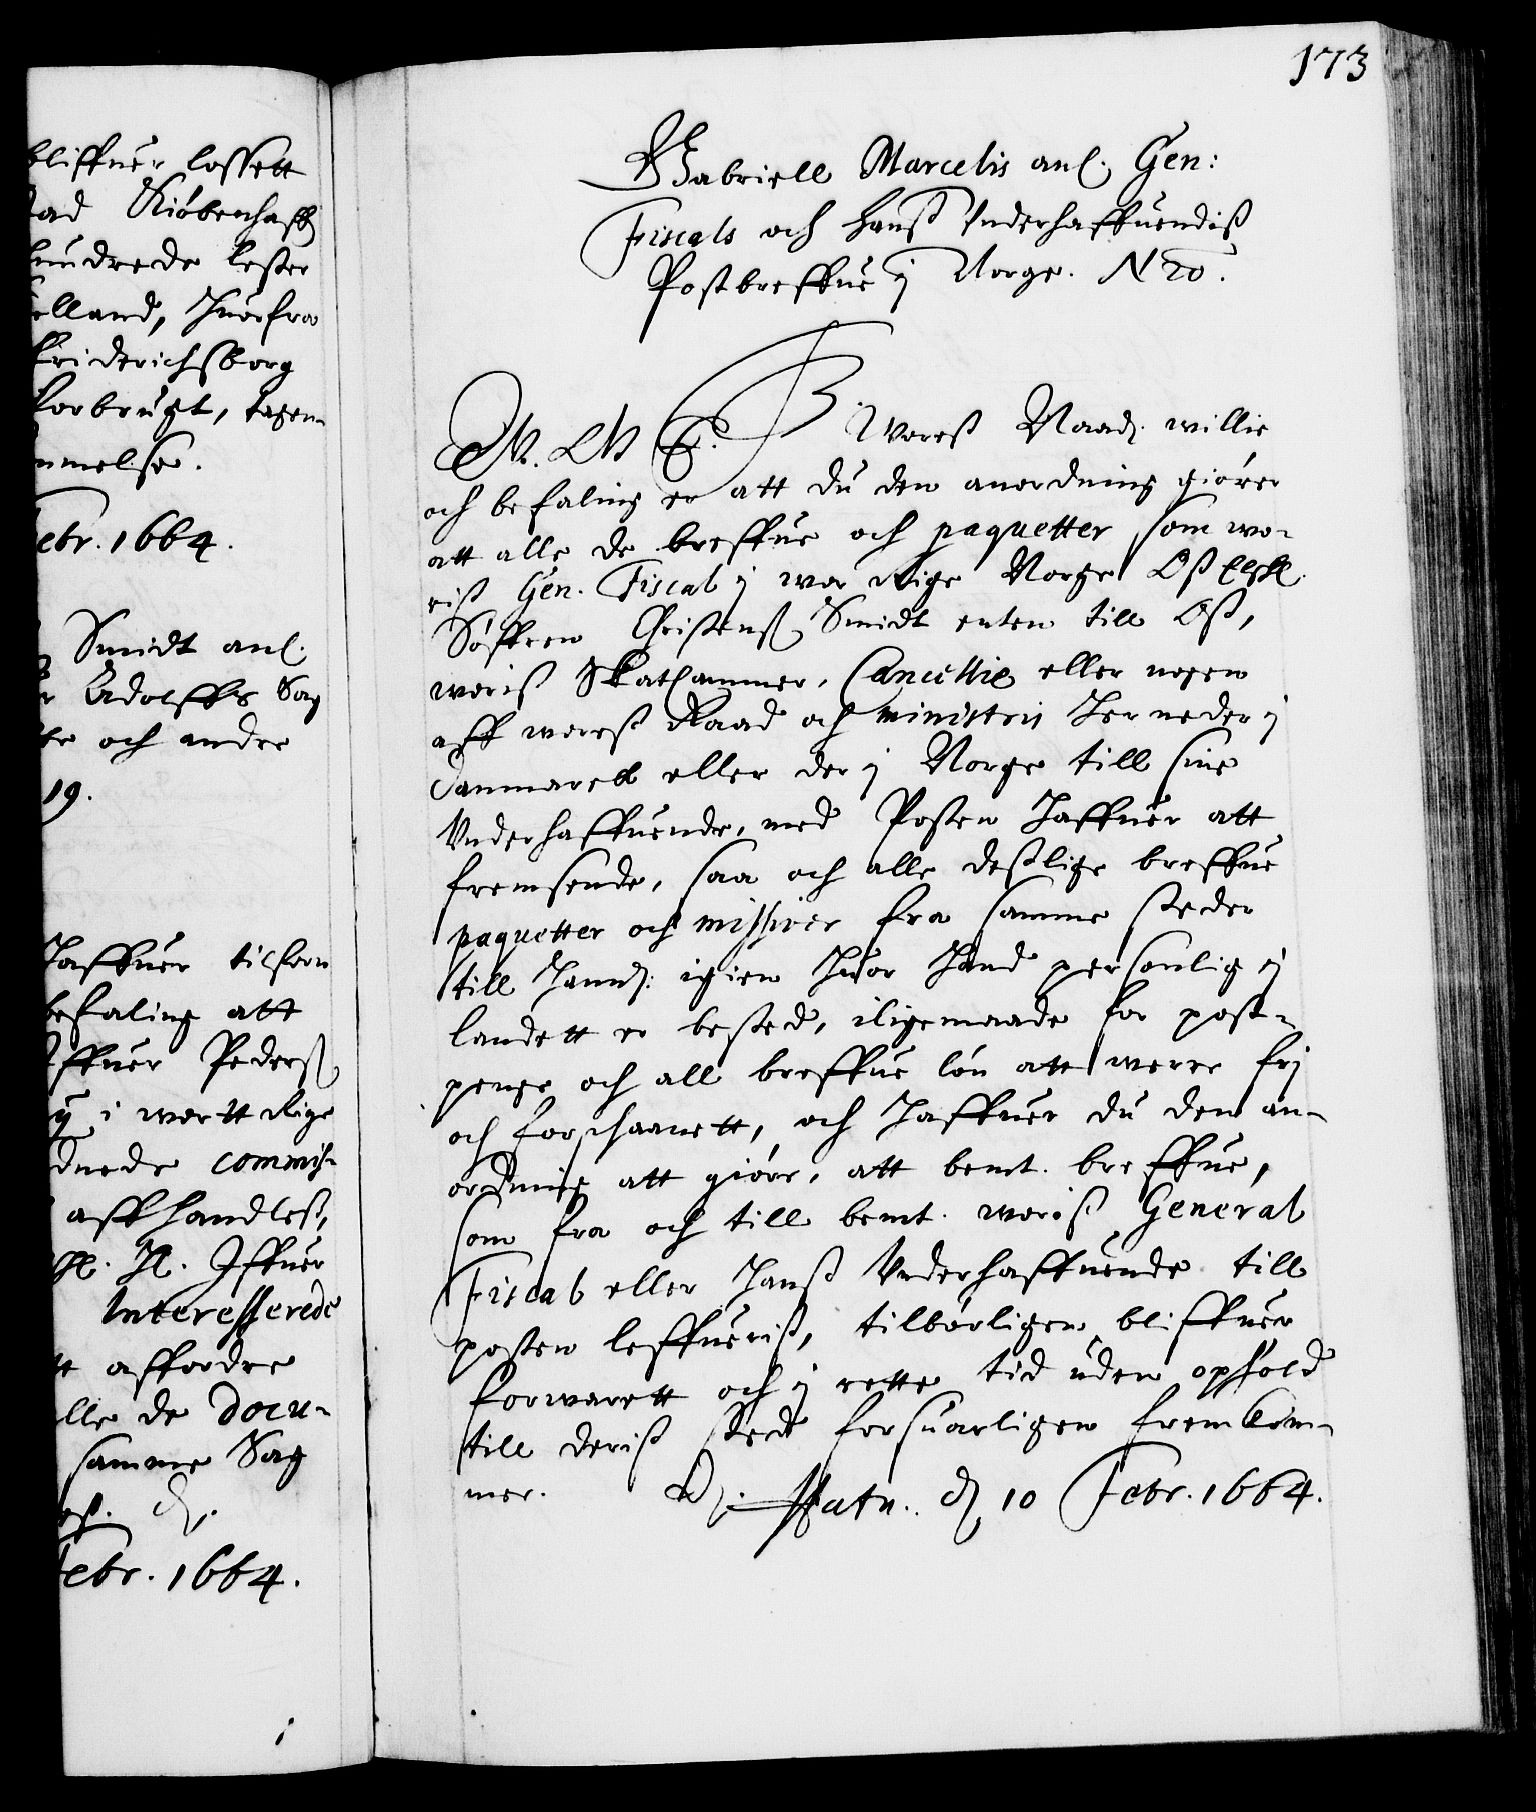 173
bliffuer lossett
Kiøbenhaffn
hundrede lester
land, huorfra
Friderichsborg
forbrugt, tagen
Febr. 1664.
Smidt anl.
Adolffs Sag
och andre
19.
haffuer tilforn
befaling att
Peders
i wortt Rige
commis-
affhandlest,
Iffuer
Interesserede
affordre
alle de Docu-
samme Sag
Febr. 1664.
Gabriell Marcelis anl. Gen:
Fiscals och hans Underhaffuendis
Postbreffue j Norge. N 20.
Woress Naad. willie
och befaling er att du den anordning giører
att alle de breffue och paquetter som wo-
riss Gen. Fiscal j wor Rige Norge Oss Elskl.
Søffren Christenss Smidt enten till Oss,
woriss Skatcammer, Cancellie eller nogen
aff woress Raad och ministris her neder j
Danmarck eller der j Norge till sine
Underhaffuende, med Posten haffuer att
fremsende, saa och alle desslige breffue
paquetter och missiver fra samme steder
till hannd: igien huor hand personlig j
landett er bested, iligemaade for post-
penge och all breffue løn att were frj
och forschaanett, och haffuer du den an-
ordning att giøre, att bemt. breffue,
som fra och till bemt. woriss General
Fiscal eller hanss Underhaffuende till
posten leffueriss, tilbørligen bliffuer
forwarett och j rette tid uden ophold
till deriss sted forsuarligen fremkom-
mer. Hafn. d. 10 Febr. 1664.